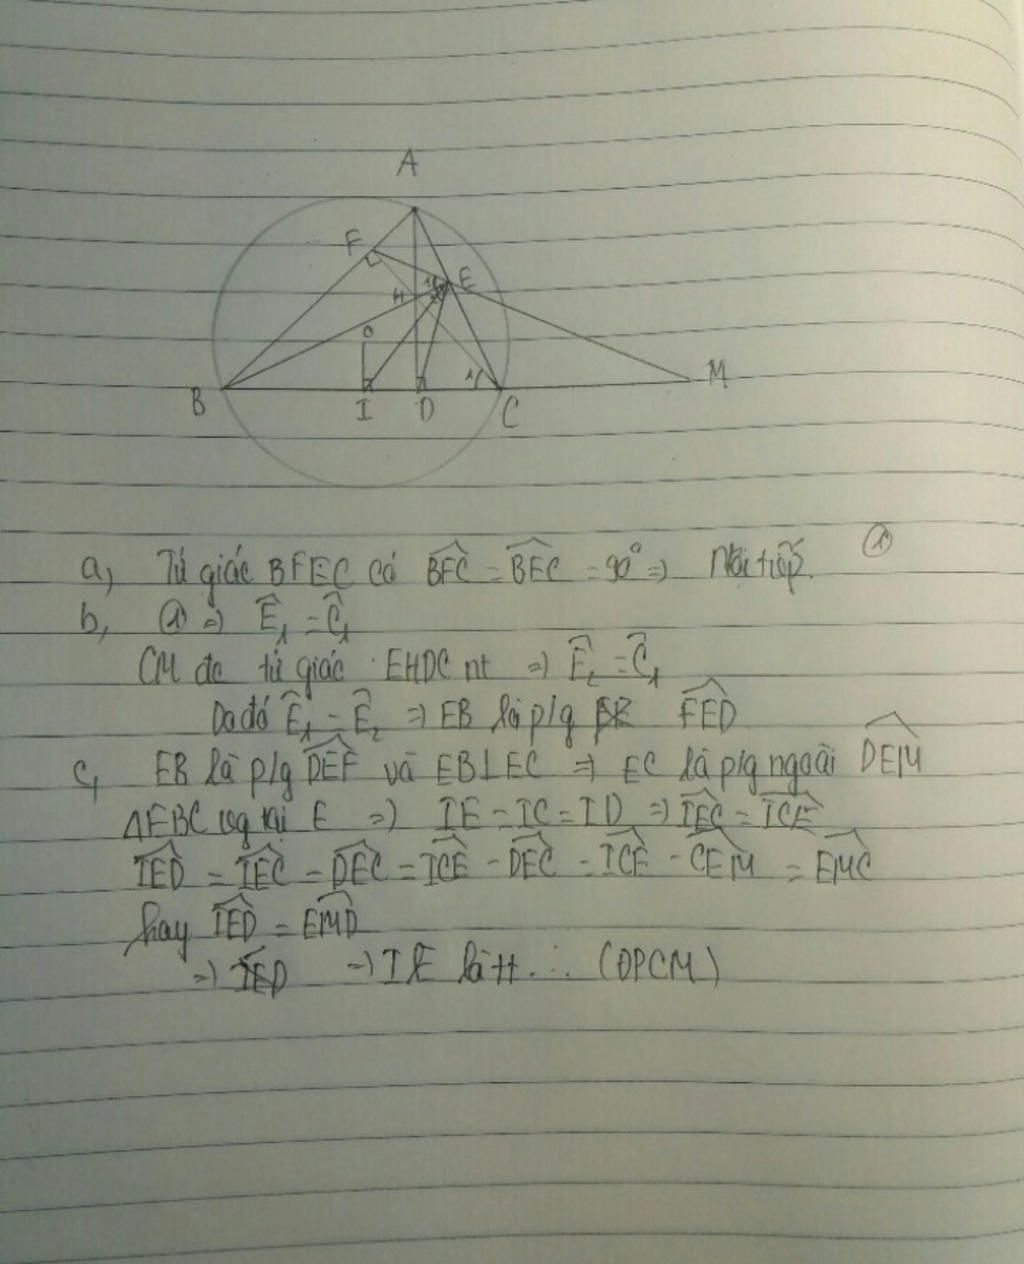 A
F
1
E
2
H
O
1
M
B
I
D
C
a, Tứ giác BFEC có BFC = BEC = 90° => Nội tiếp. ①
b, ① => E1 = C1
CM đc tứ giác EHDC nt => E2 = C1
Do đó E1 = E2 => EB là p/g FED
c, EB là p/g DEF và EB⊥EC => EC là p/g ngoài DEM
ΔEBC vg tại E => IE = IC = ID => IEC = ICE
IED = IEC - DEC = ICE - DEC = ICE - CEM = EMC
hay IED = EMD
=> IED => IE là tt ... (ĐPCM)